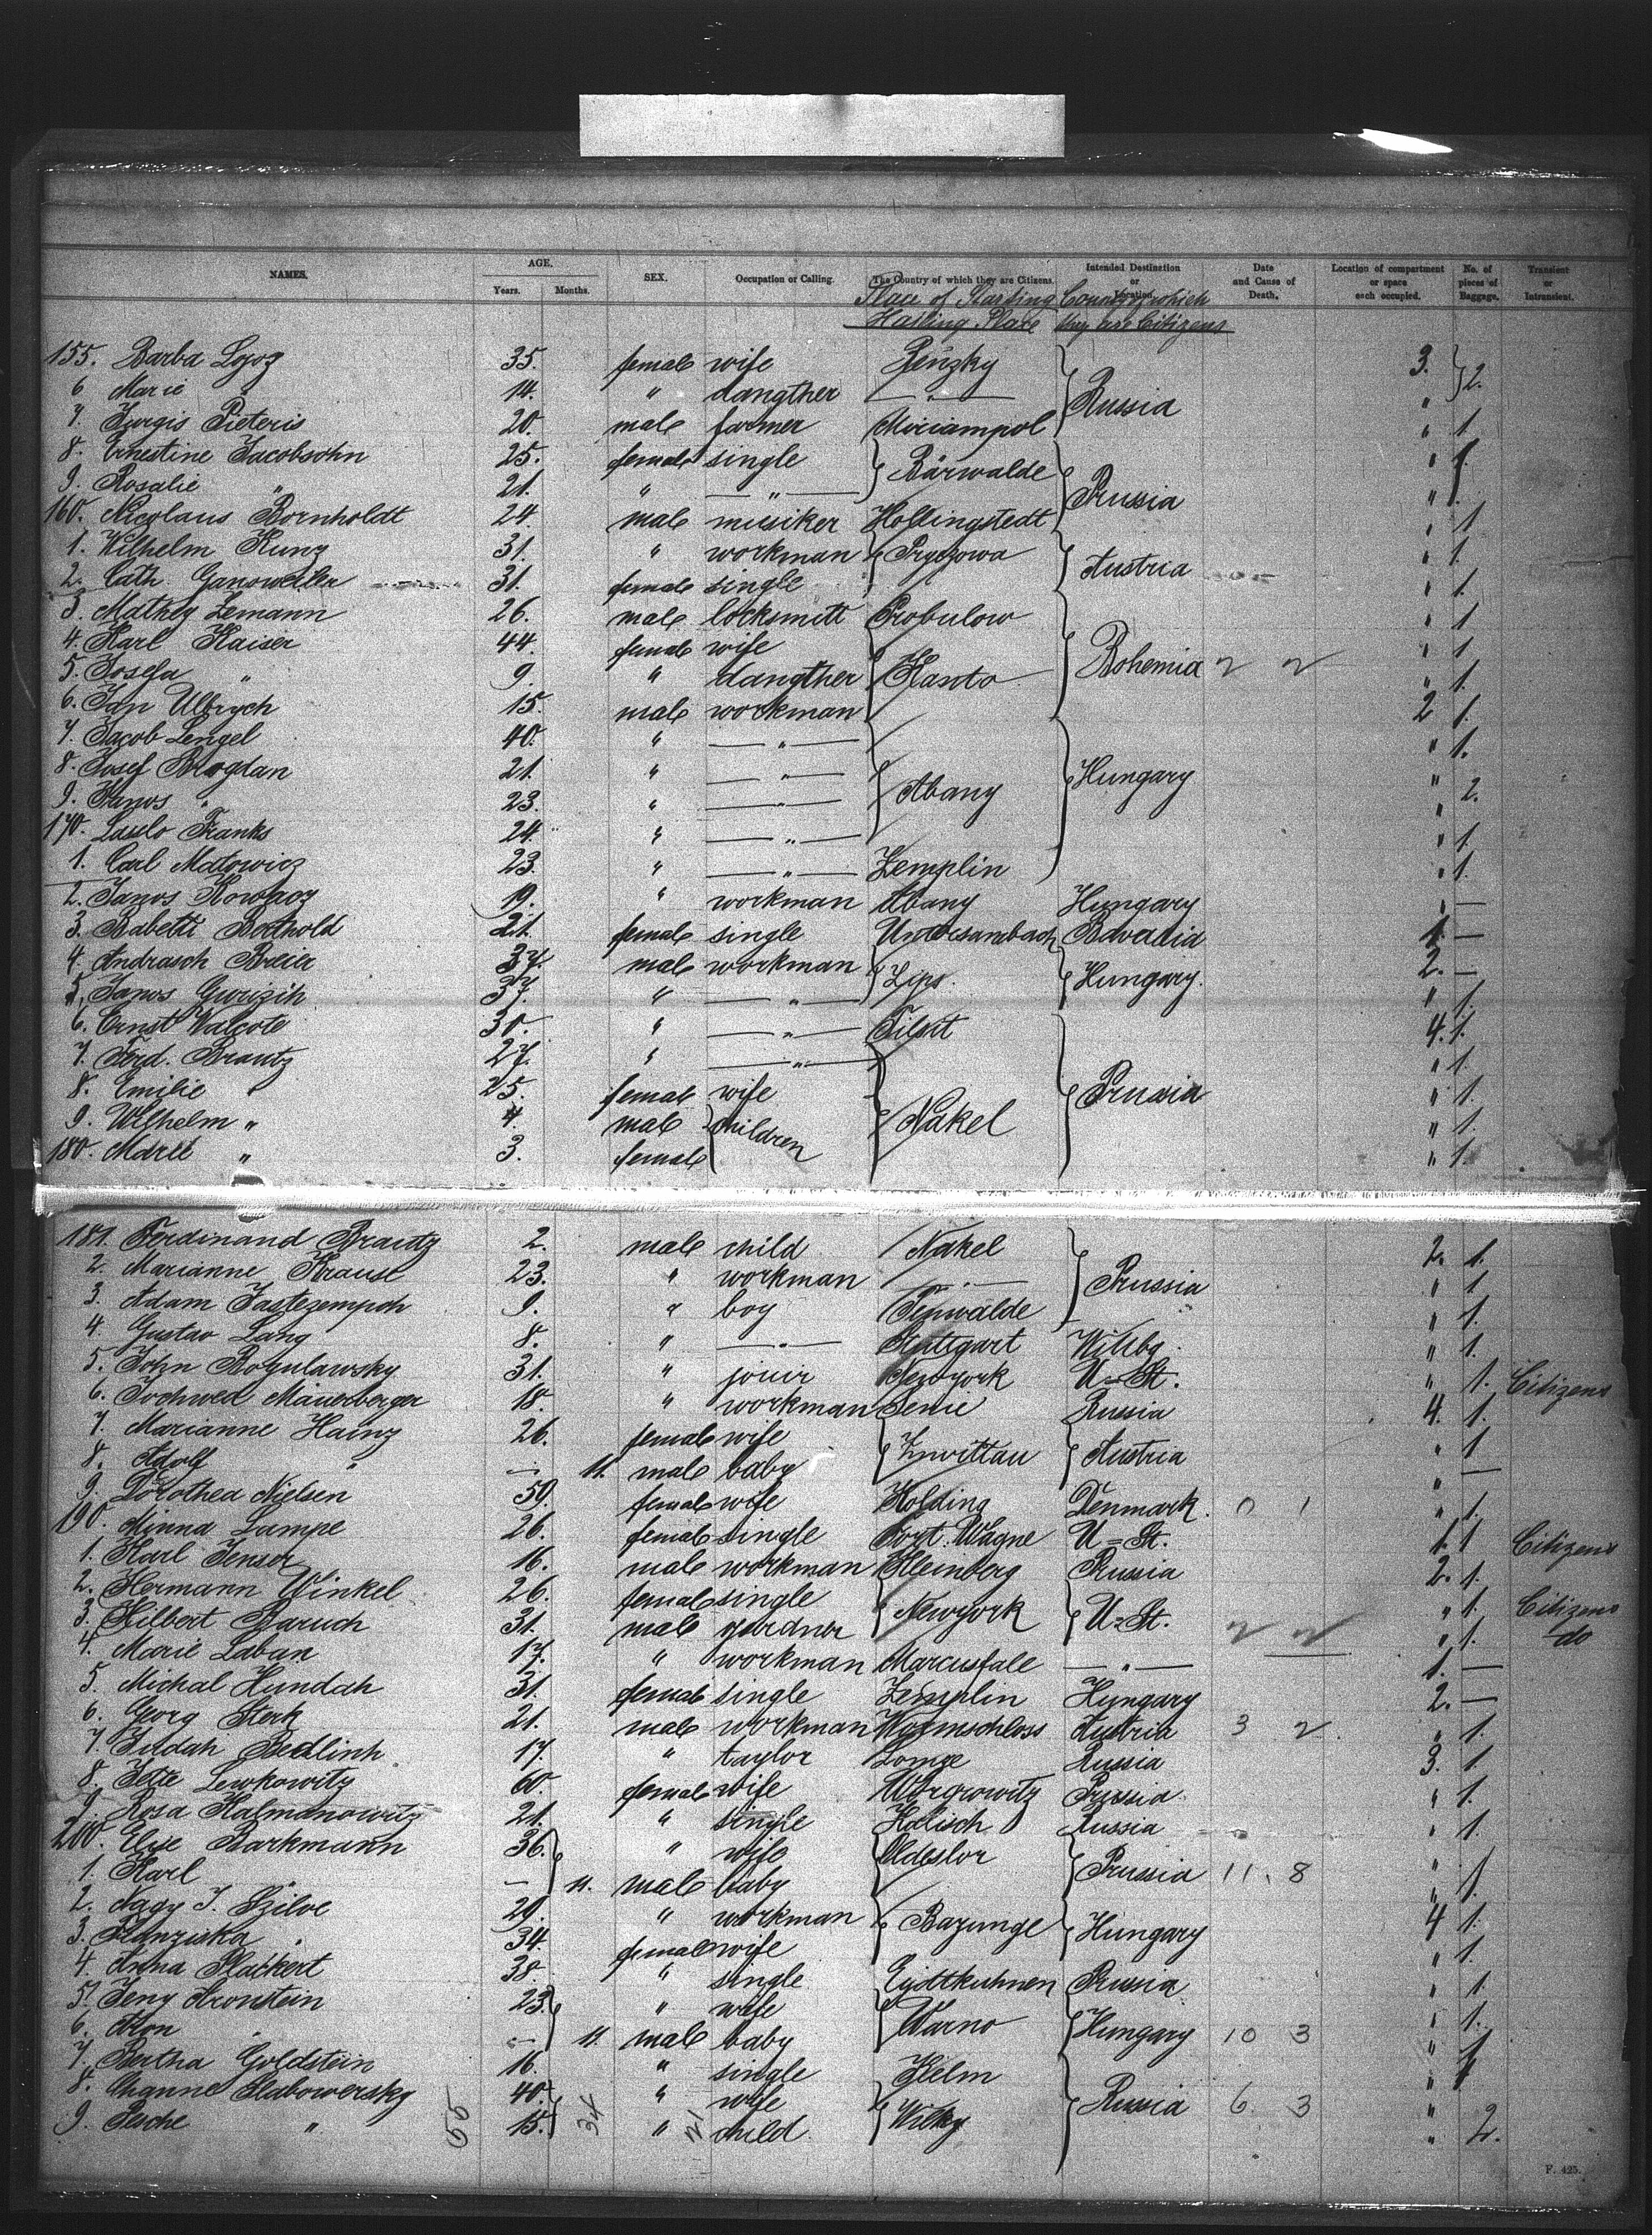 NAMES. AGE. Years. Months. SEX. Occupation or Calling. The Country of which they are Citizens. Intended Destination or Location. Date and Cause of Death. Location of compartment or space each occupied. No. of pieces of Baggage. Transient or Intransient.
Place of Starting Country of which
Halting Place they are Citizens
155. Barba Lojoz 35. female wife 3. 2.
6 Marie " 14. " dangther — " — Russia "
7. Jurgis Pieteris 20. male farmer Miriampol " 1
8. Ernestine Jacobsohn 25. female single Bärwalde " 1.
9. Rosalie " 21. " — " — Prussia " 1.
160. Nicolaus Bornholdt 24. male musiker Hollingstedt " 1
1. Wilhelm Kunz 31. " workman " 1.
2. Cath. Gansweiler 31. female single Austria " 1.
3. Mathey Zemann 26. male locksmitt Probulow " 1
4. Karl Kaiser 44. female wife Bohemia " 1
5. Josefa " 9. " dangther Hasto " 1.
6. Jan Ulbrych 15. male workman 2 1.
7. Jacob Lengel 40. " — " — " 1.
8. Josef Brogdan 21. " — " — Abany Hungary "
9. Janos " 23. " — " — " 2.
170. Laszlo Franks 24. " — " — " 1.
1. Carl Matowicz 23. " — " — Zemplin " 1.
2. Janos Kowacz 19. " workman Abany Hungary " —
3. Babetti Berthold 21. female single Untersambach Bavaria 1. —
4. Andrasch Breier 37. male workman Zips. Hungary. 2. —
5. Janos Gurizih 37. " — " — " 1.
6. Ernst Valcote 30. " — " — Tilsit 4. 1.
7. Ferd. Brautz 27. " — " — " 1.
8. Emilie " 25. female wife Prussia " 1.
9. Wilhelm " 4. male children Nakel " 1.
180. " 3. female " 1.
181. Ferdinand Brautz 2. male child Nakel 2. 1.
2. Marianne Krause 23. " workman — " — Prussia " 1
3. Adam Jastezempch 9. " boy " 1.
4. Gustav Lang 8. " — " — Stuttgart " 1.
5. John Bogulawsky 31. " Newyork U=St. " 1. Citizens
6. Jochwed Mauerberger 18. " workman Senie Russia 4. 1.
7. Marianne Hainz 26. female wife Zwittau Austria " 1
8. Adolf " — 11. male baby " —
9. Dorothea Nielsen 59. female wife Kolding Denmark. 0 1 " 1.
190. Minna Lampe 26. female single Fort Wagne U=St. 1. 1 Citizens
1. Karl Jenser 16. male workman Kleinberg Russia 2. 1.
2. Hermann Winkel 26. female single Newyork U=St. " 1. Citizens
3. Hilbert Baruch 31. male gardner " 1. do
4. Marie Laban 17. " workman Marcusfale — " — 1. —
5. Michal Hundah 31. female single Zemplin Hungary 2. —
6. Georg Sterk 21. male workman Austria 3 2. " 1.
7. Judah Bedlinh 17. " taylor Lomze Russia 3. 1.
8. Jette Lewkowitz 60. female wife Wongrowitz Prussia. " 1.
9. Rosa Kalmanowitz 21. " single Kalisch Russia " 1.
200. Else Barkmann 36. " wife Oldeslor Prussia 11. 8 "
1. Karl " — 11. male baby " 1.
2. Nagy J. Szilve 29. " workman Bazunge Hungary 4 1.
3. Franziska " 34. female wife " 1.
4. Anna Plackert 38. " single Eydtkuhnen Prussia. " 1
5. Jeny Aronstein 23. " wife Warno Hungary 10 3 " 1.
6. Aron " — 11. male baby " 1
7. Bertha Goldstein 16. " single Kelm " 1
8. Channe Slabowersky 40. " wife Russia 6. 3 "
9. Pesche " 15. " child " 2.
55 34 21
F. 425.